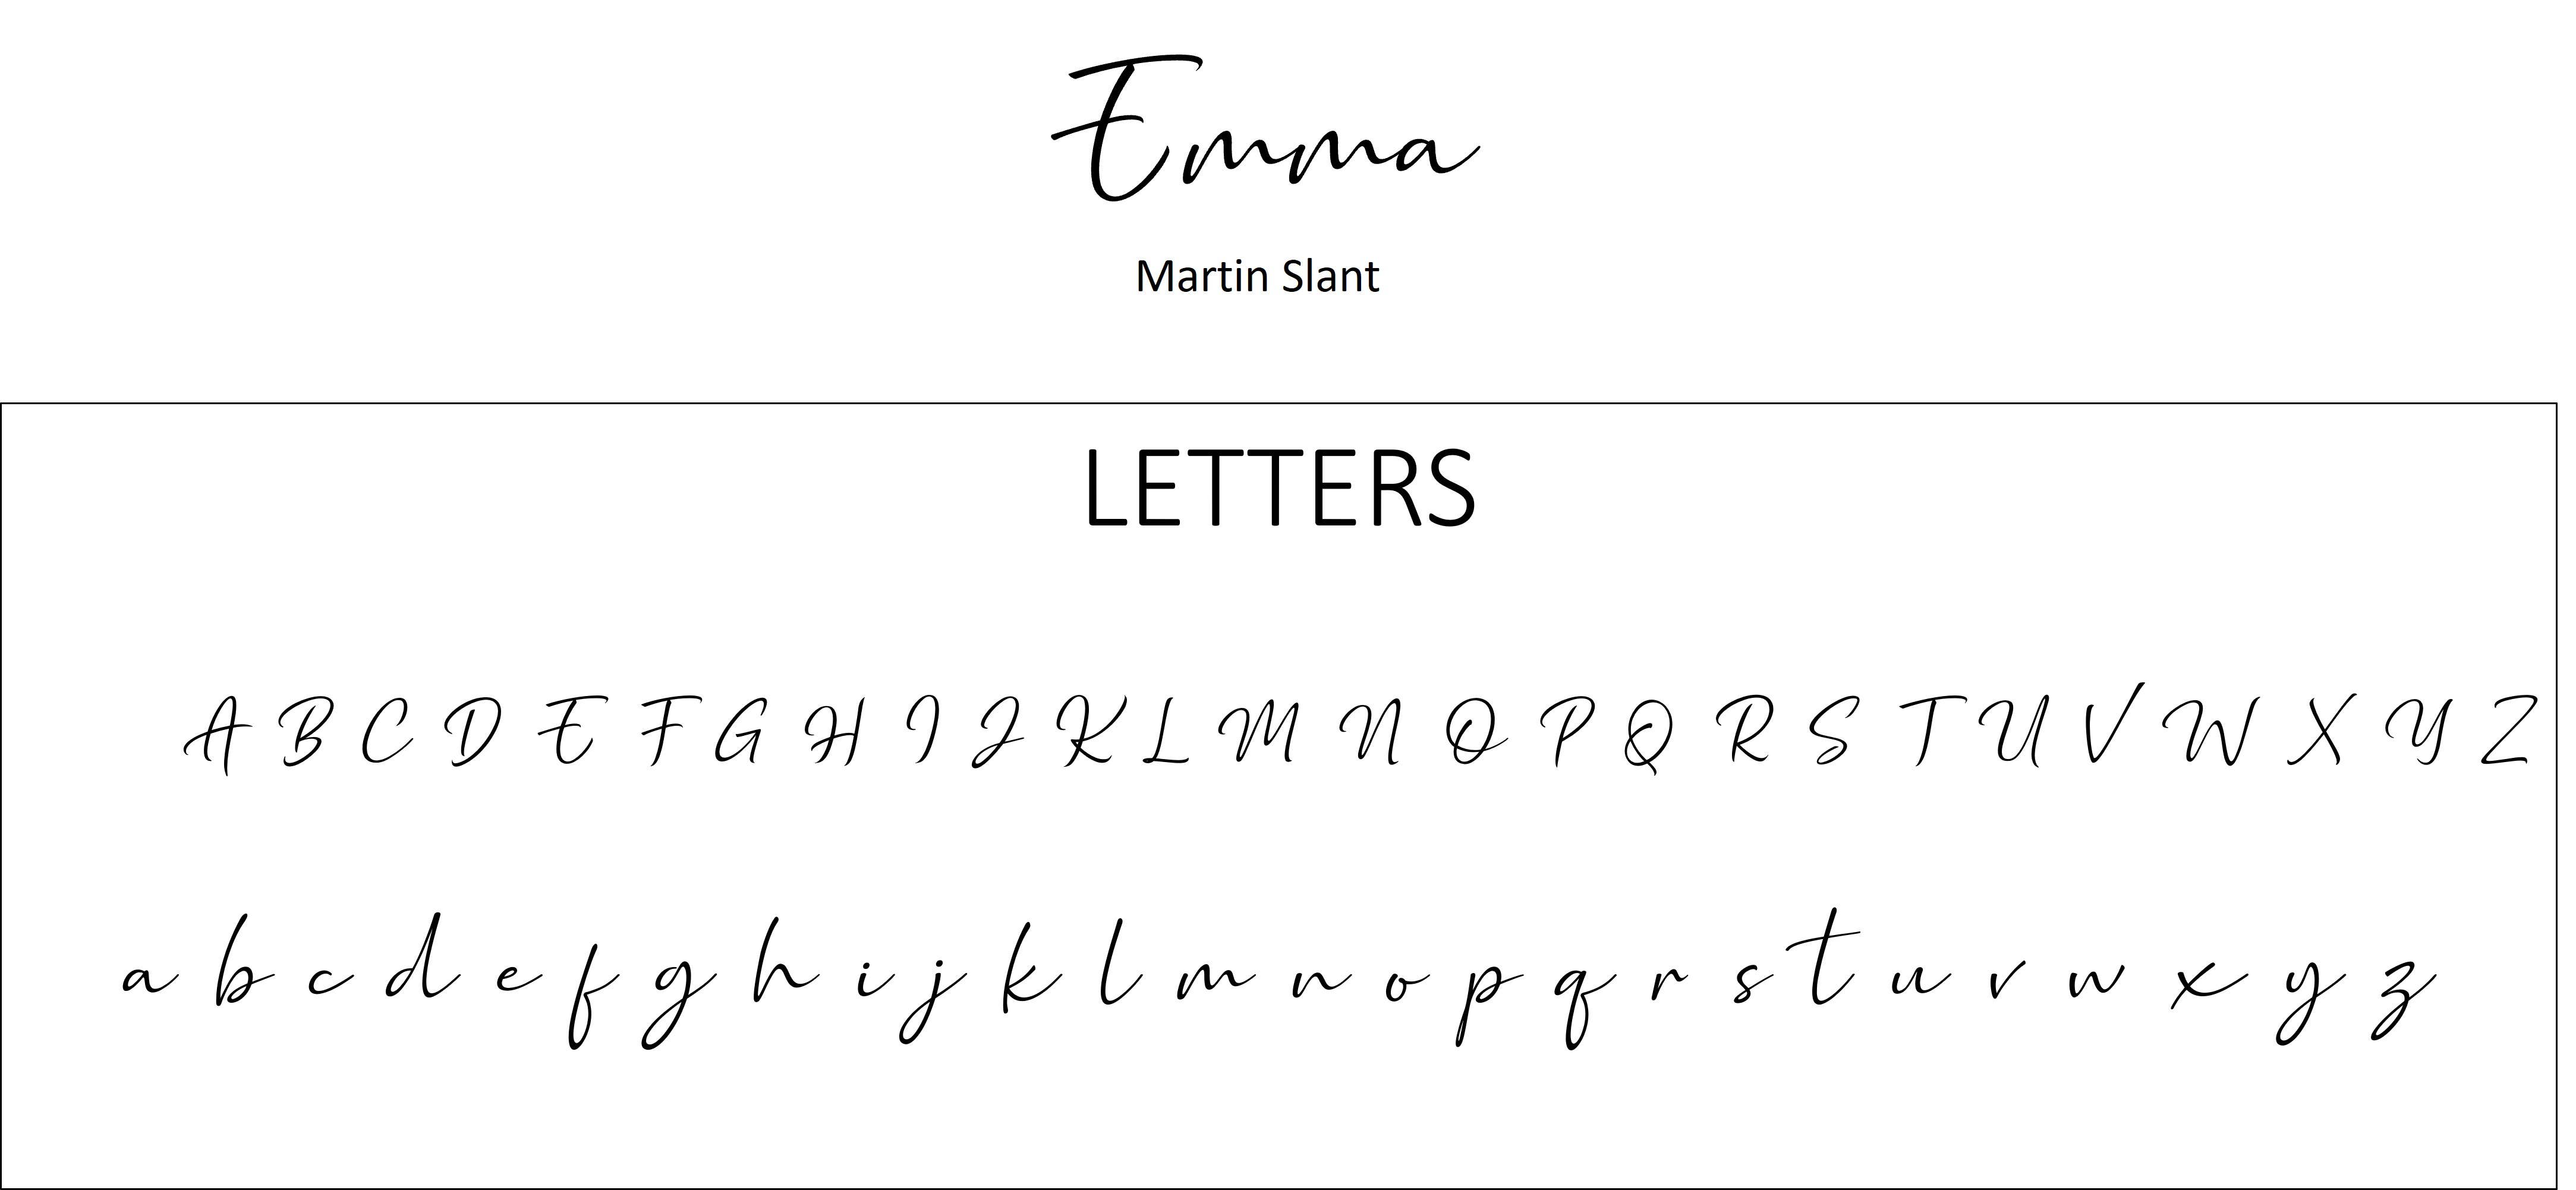 Emma
Martin Slant
LETTERS
A B C D E F G H I J K L M N O P Q R S T U V W X Y Z
a b c d e f g h i j k l m n o p q r s t u v w x y z